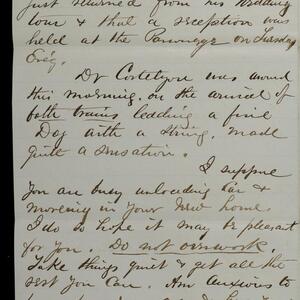 just returned from his Wedding
tour & that a reception was
held at the Parsonage on Tuesday
Eve'g.
Dr Cortelyou was around
this morning, on the arrival of
both trains leading a fine
Dog with a string. Made
quite a sensation.
I suppose
you are busy unloading Car &
moveing in your New home.
I do so hope it may be pleasant
for you. Do not overwork.
Take things quiet & get all the
rest you can. Am Anxious to